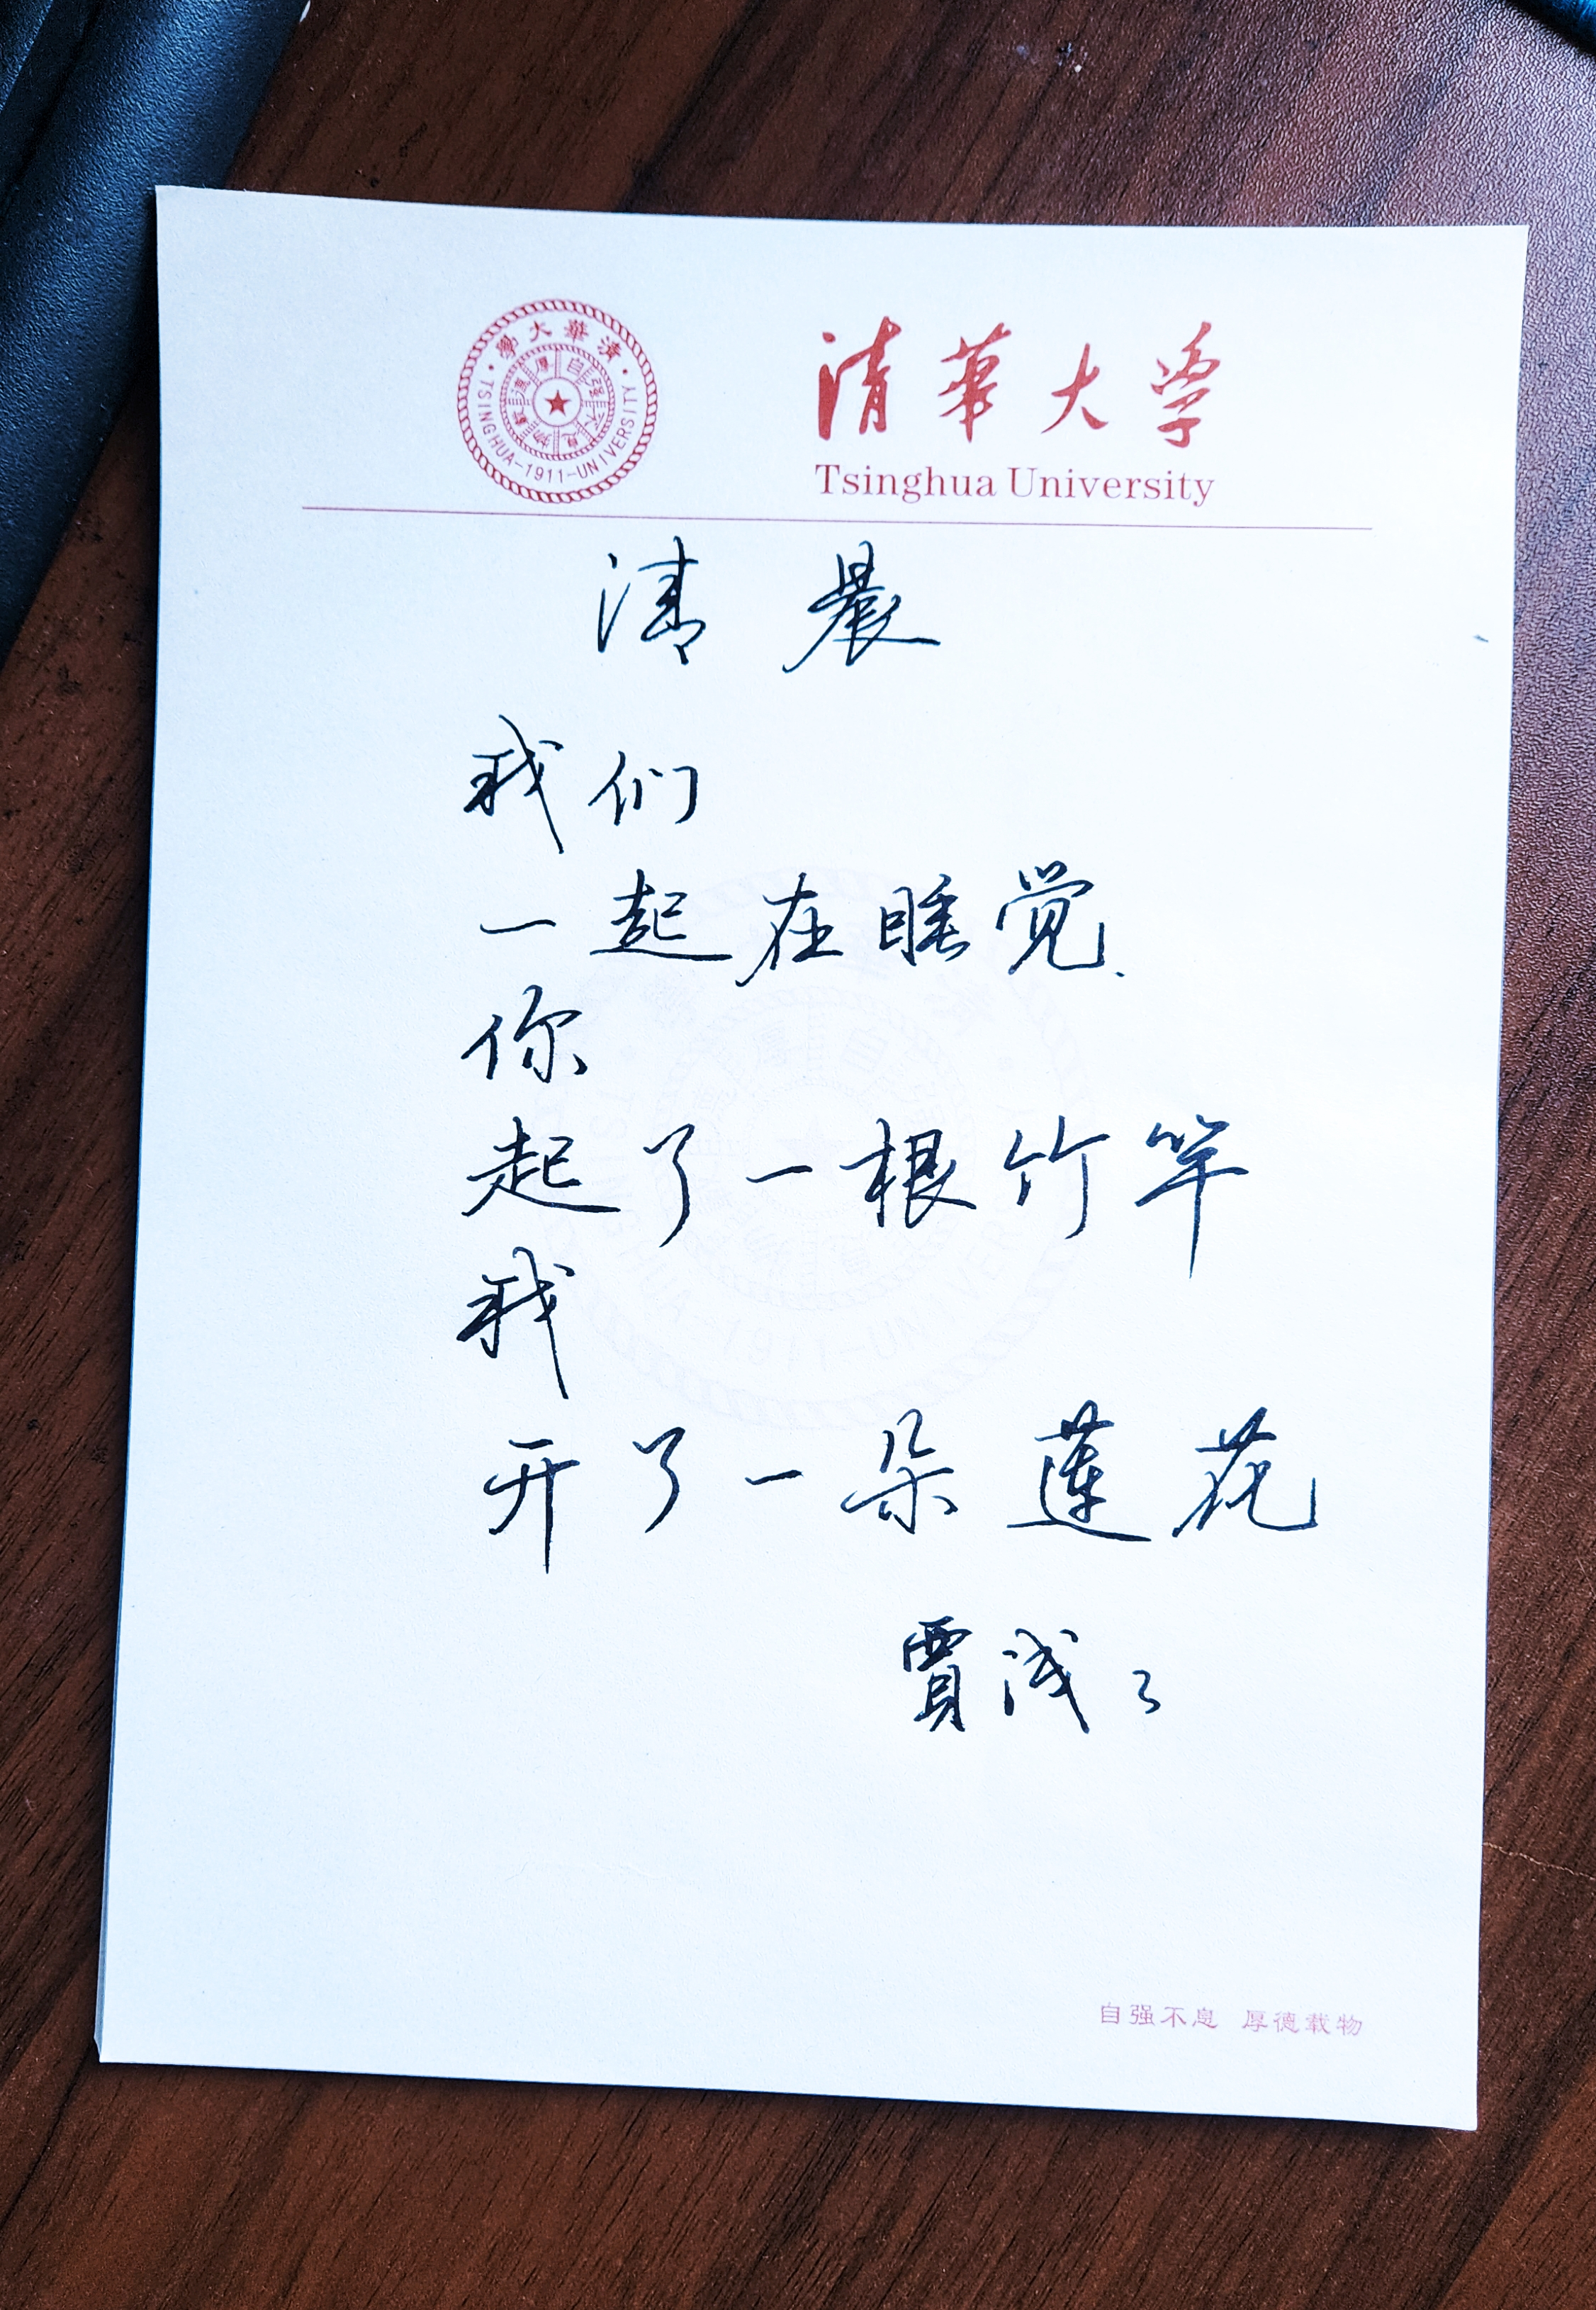 清華大學
TSINGHUA-1911-UNIVERSITY
自强不息
厚德載物
清華大学
Tsinghua University
清晨
我们
一起在睡觉.
你
起了一根竹竿
我
开了一朵莲花
賈浅々
自强不息 厚德载物